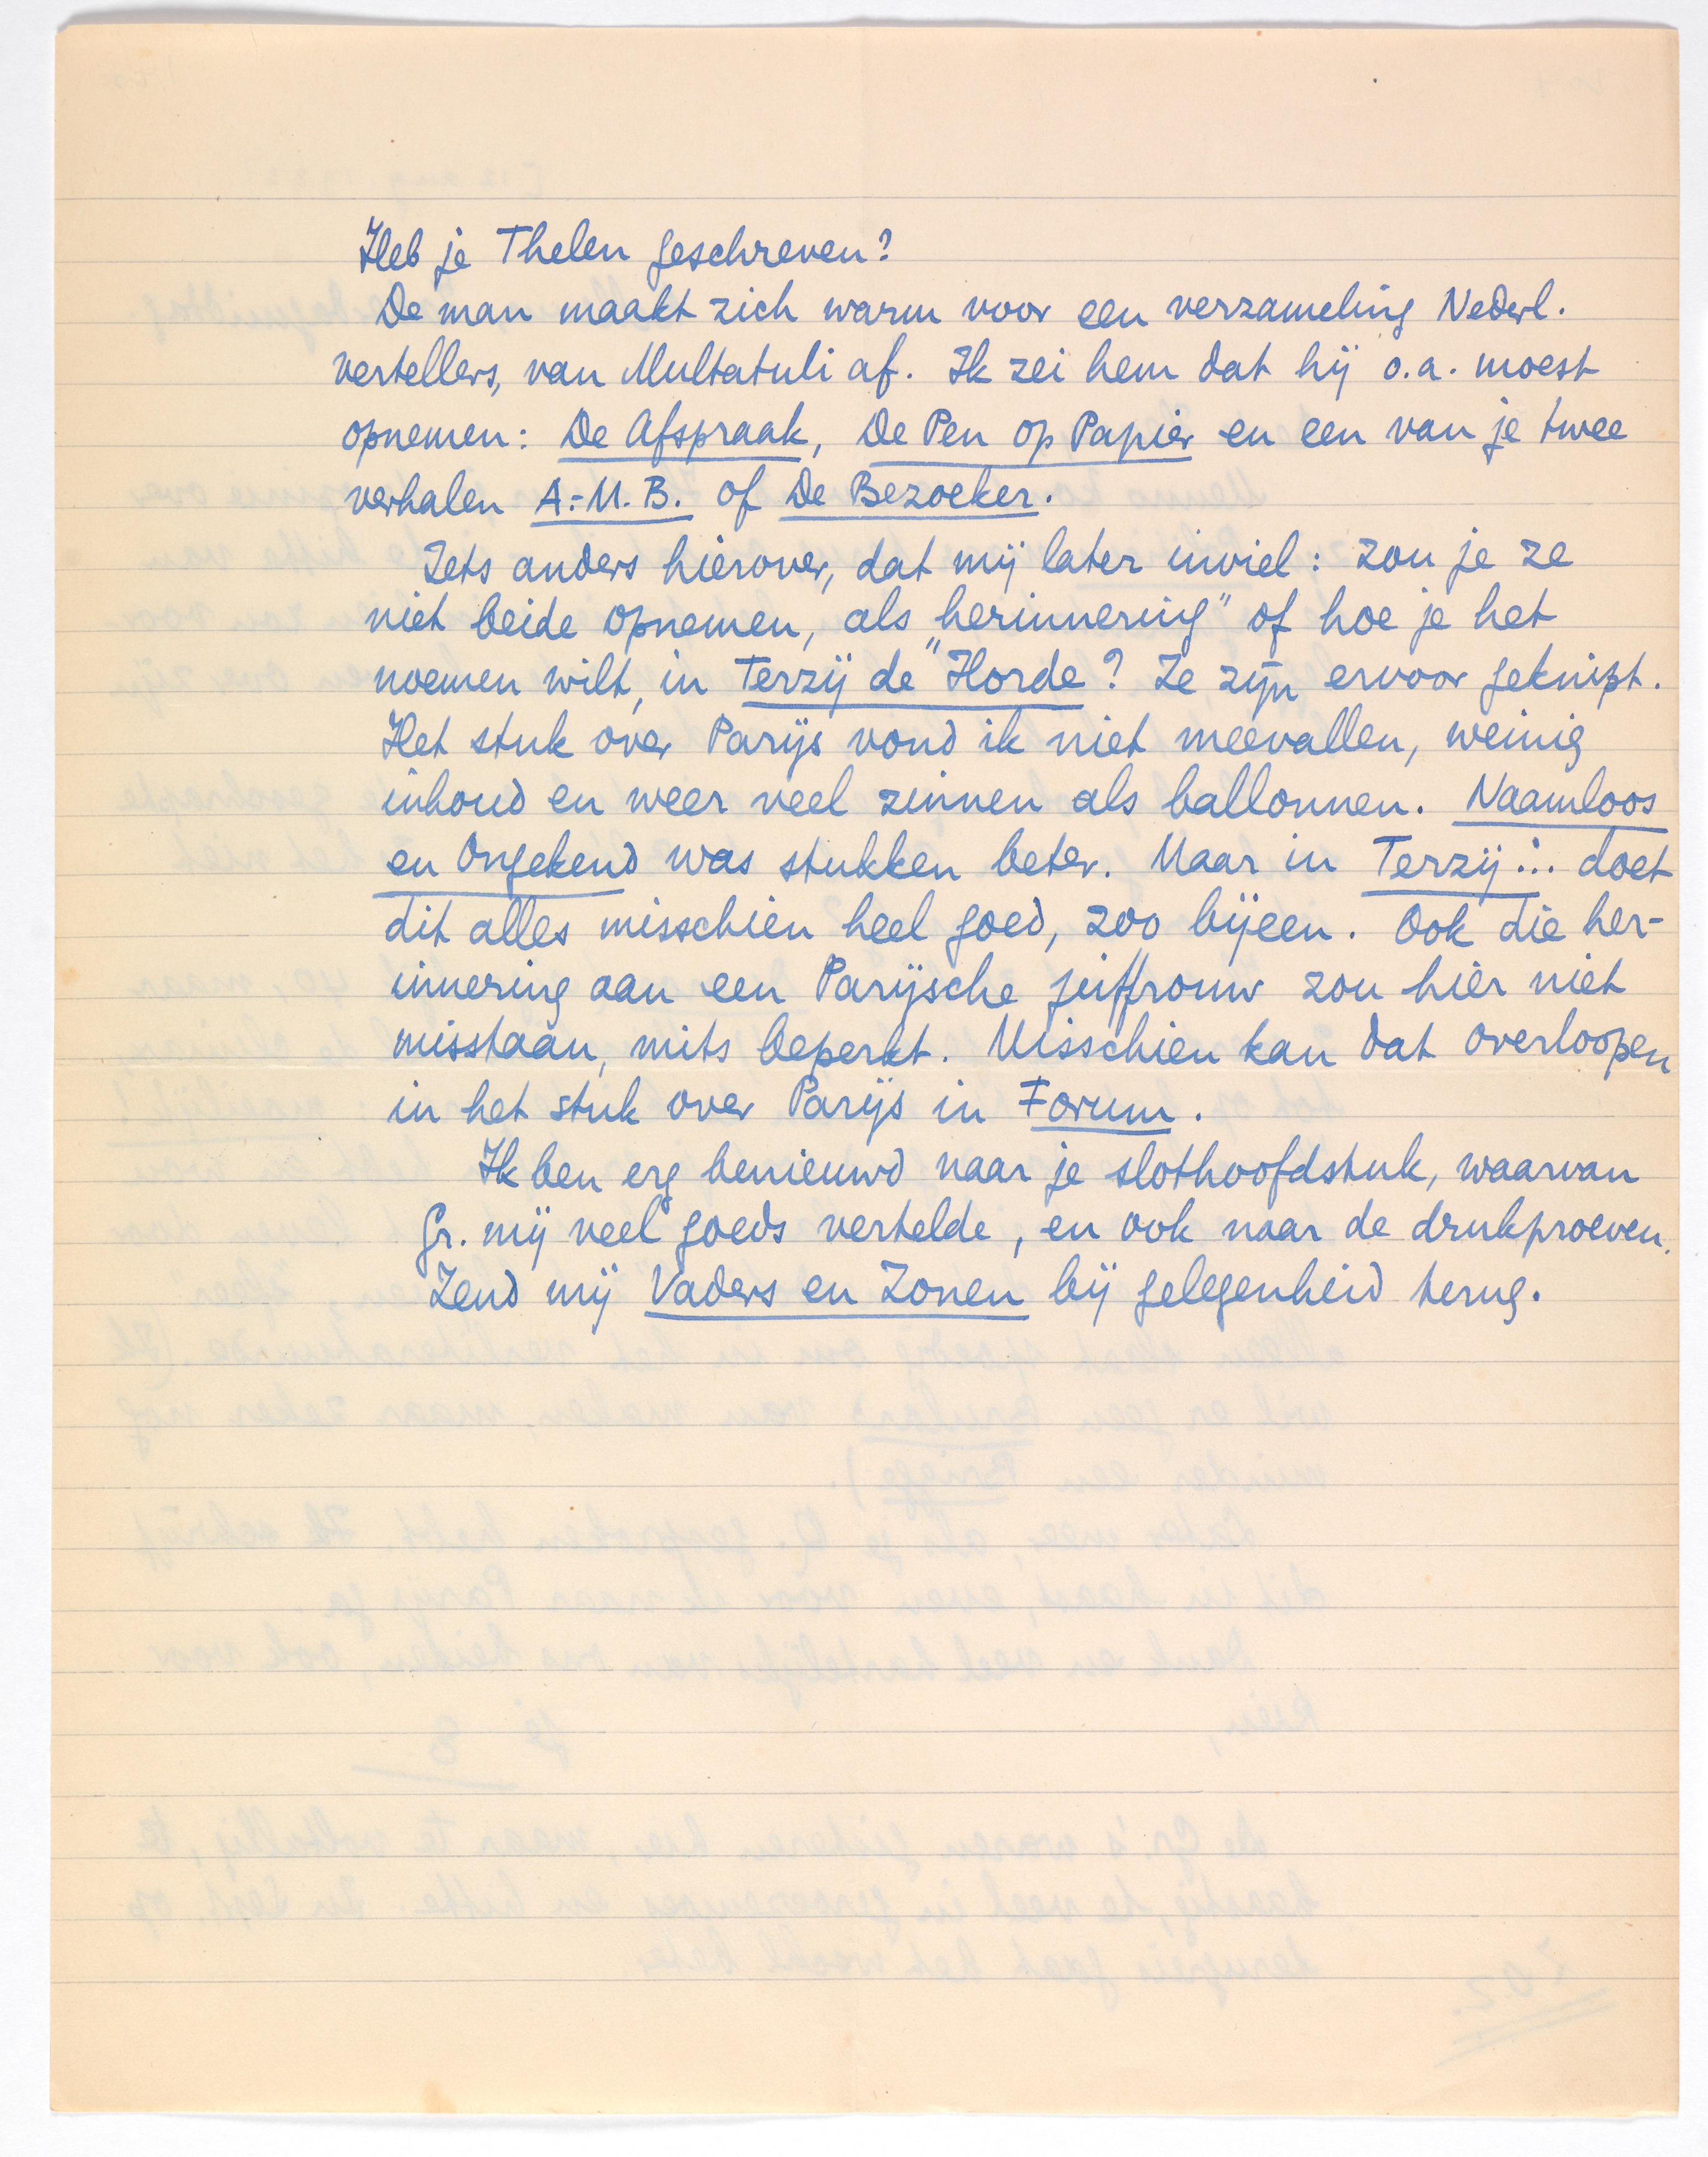 Heb je Thelen geschreven?
De man maakt zich warm voor een verzameling Nederl.
vertellers, van Multatuli af. Ik zei hem dat hij o.a. moest
opnemen: De Afspraak, De Pen op Papier en een van je twee
verhalen A.-M.B. of De Bezoeker.
Iets anders hierover, dat mij later inviel: zou je ze
niet beide opnemen, als „herinnering" of hoe je het
noemen wilt, in Terzij de Horde? Ze zijn ervoor geknipt.
Het stuk over Parijs vond ik niet meevallen, weinig
inhoud en weer veel zinnen als ballonnen. Naamloos
en Ongekend was stukken beter. Maar in Terzij... doet
dit alles misschien heel goed, zoo bijeen. Ook die her-
innering aan een Parijsche juffrouw zou hier niet
misstaan, mits beperkt. Misschien kan dat overloopen
in het stuk over Parijs in Forum.
Ik ben erg benieuwd naar je slothoofdstuk, waarvan
Gr. mij veel goeds vertelde, en ook naar de drukproeven.
Zend mij Vaders en Zonen bij gelegenheid terug.